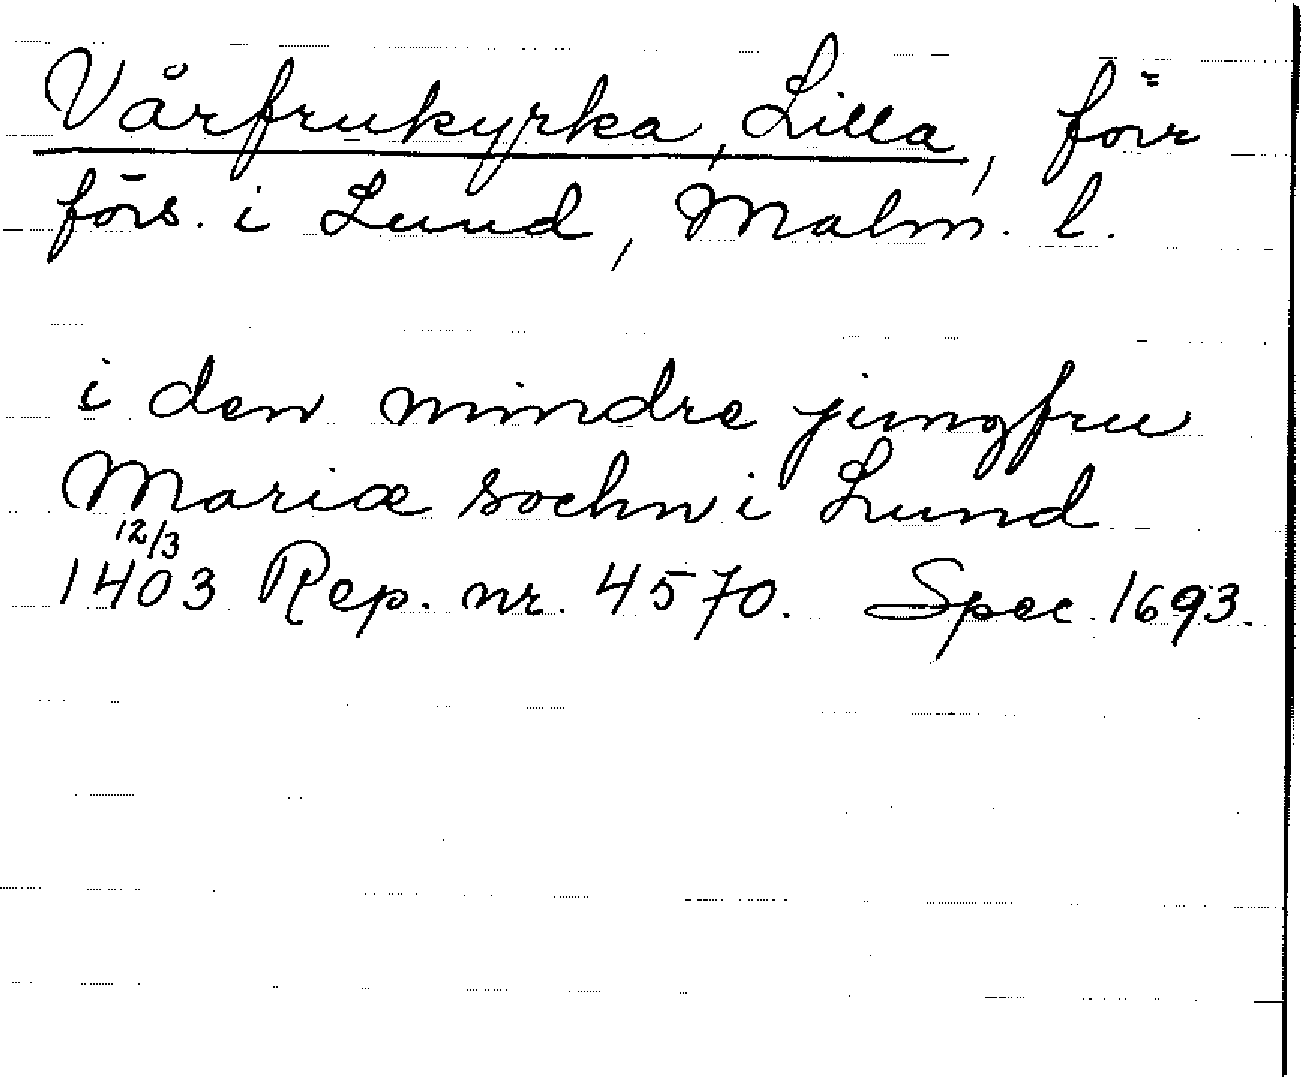 Vårfrukyrka, Lilla, förr
förs. i Lund, Malm. l.
i den mindre jungfru
Mariæ sochn i Lund
12/3
1403 Rep. nr. 4570. Spec 1693.